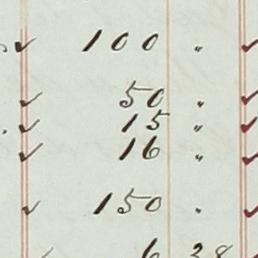 ✓ 100 " ✓
✓ 50 " ✓
✓ 15 " ✓
✓ 16 " ✓
✓ 150 " ✓
6 38